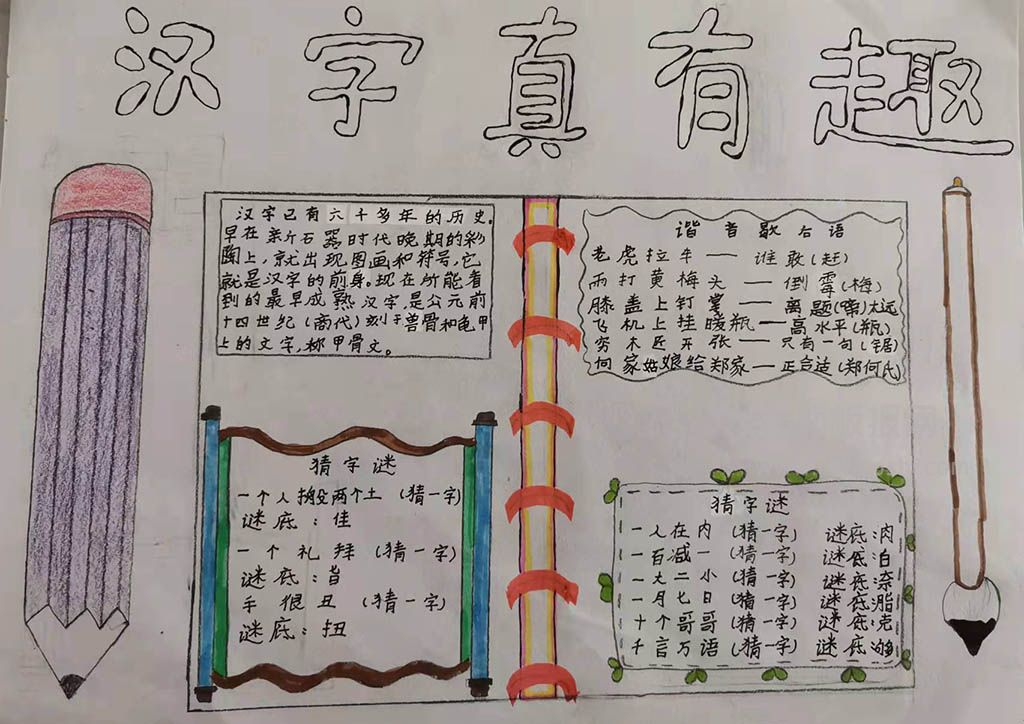 汉字真有趣
汉字已有六十多年的历史。
早在新石器时代晚期的彩
陶上,就出现图画和符号,它
就是汉字的前身。现在所能看
到的最早成熟汉字,是公元前
十四世纪(商代)刻于兽骨和龟甲
上的文字,称甲骨文。
谐音歇后语
老虎拉车——谁敢(赶)
雨打黄梅头——倒霉(梅)
膝盖上钉掌——离题(蹄)太远
飞机上挂暖瓶——高水平(瓶)
穷木匠开张——只有一句(锯)
何家姑娘给郑家——正合适(郑何氏)
猜字谜
一个人搬两个土(猜一字)
谜底:佳
一个礼拜(猜一字)
谜底:旨
手很丑(猜一字)
谜底:扭
猜字谜
一人在内(猜一字) 谜底:肉
一百减一(猜一字) 谜底:白
一大二小(猜一字) 谜底:奈
一月七日(猜一字) 谜底:脂
十个哥哥(猜一字) 谜底:克
千言万语(猜一字) 谜底:够